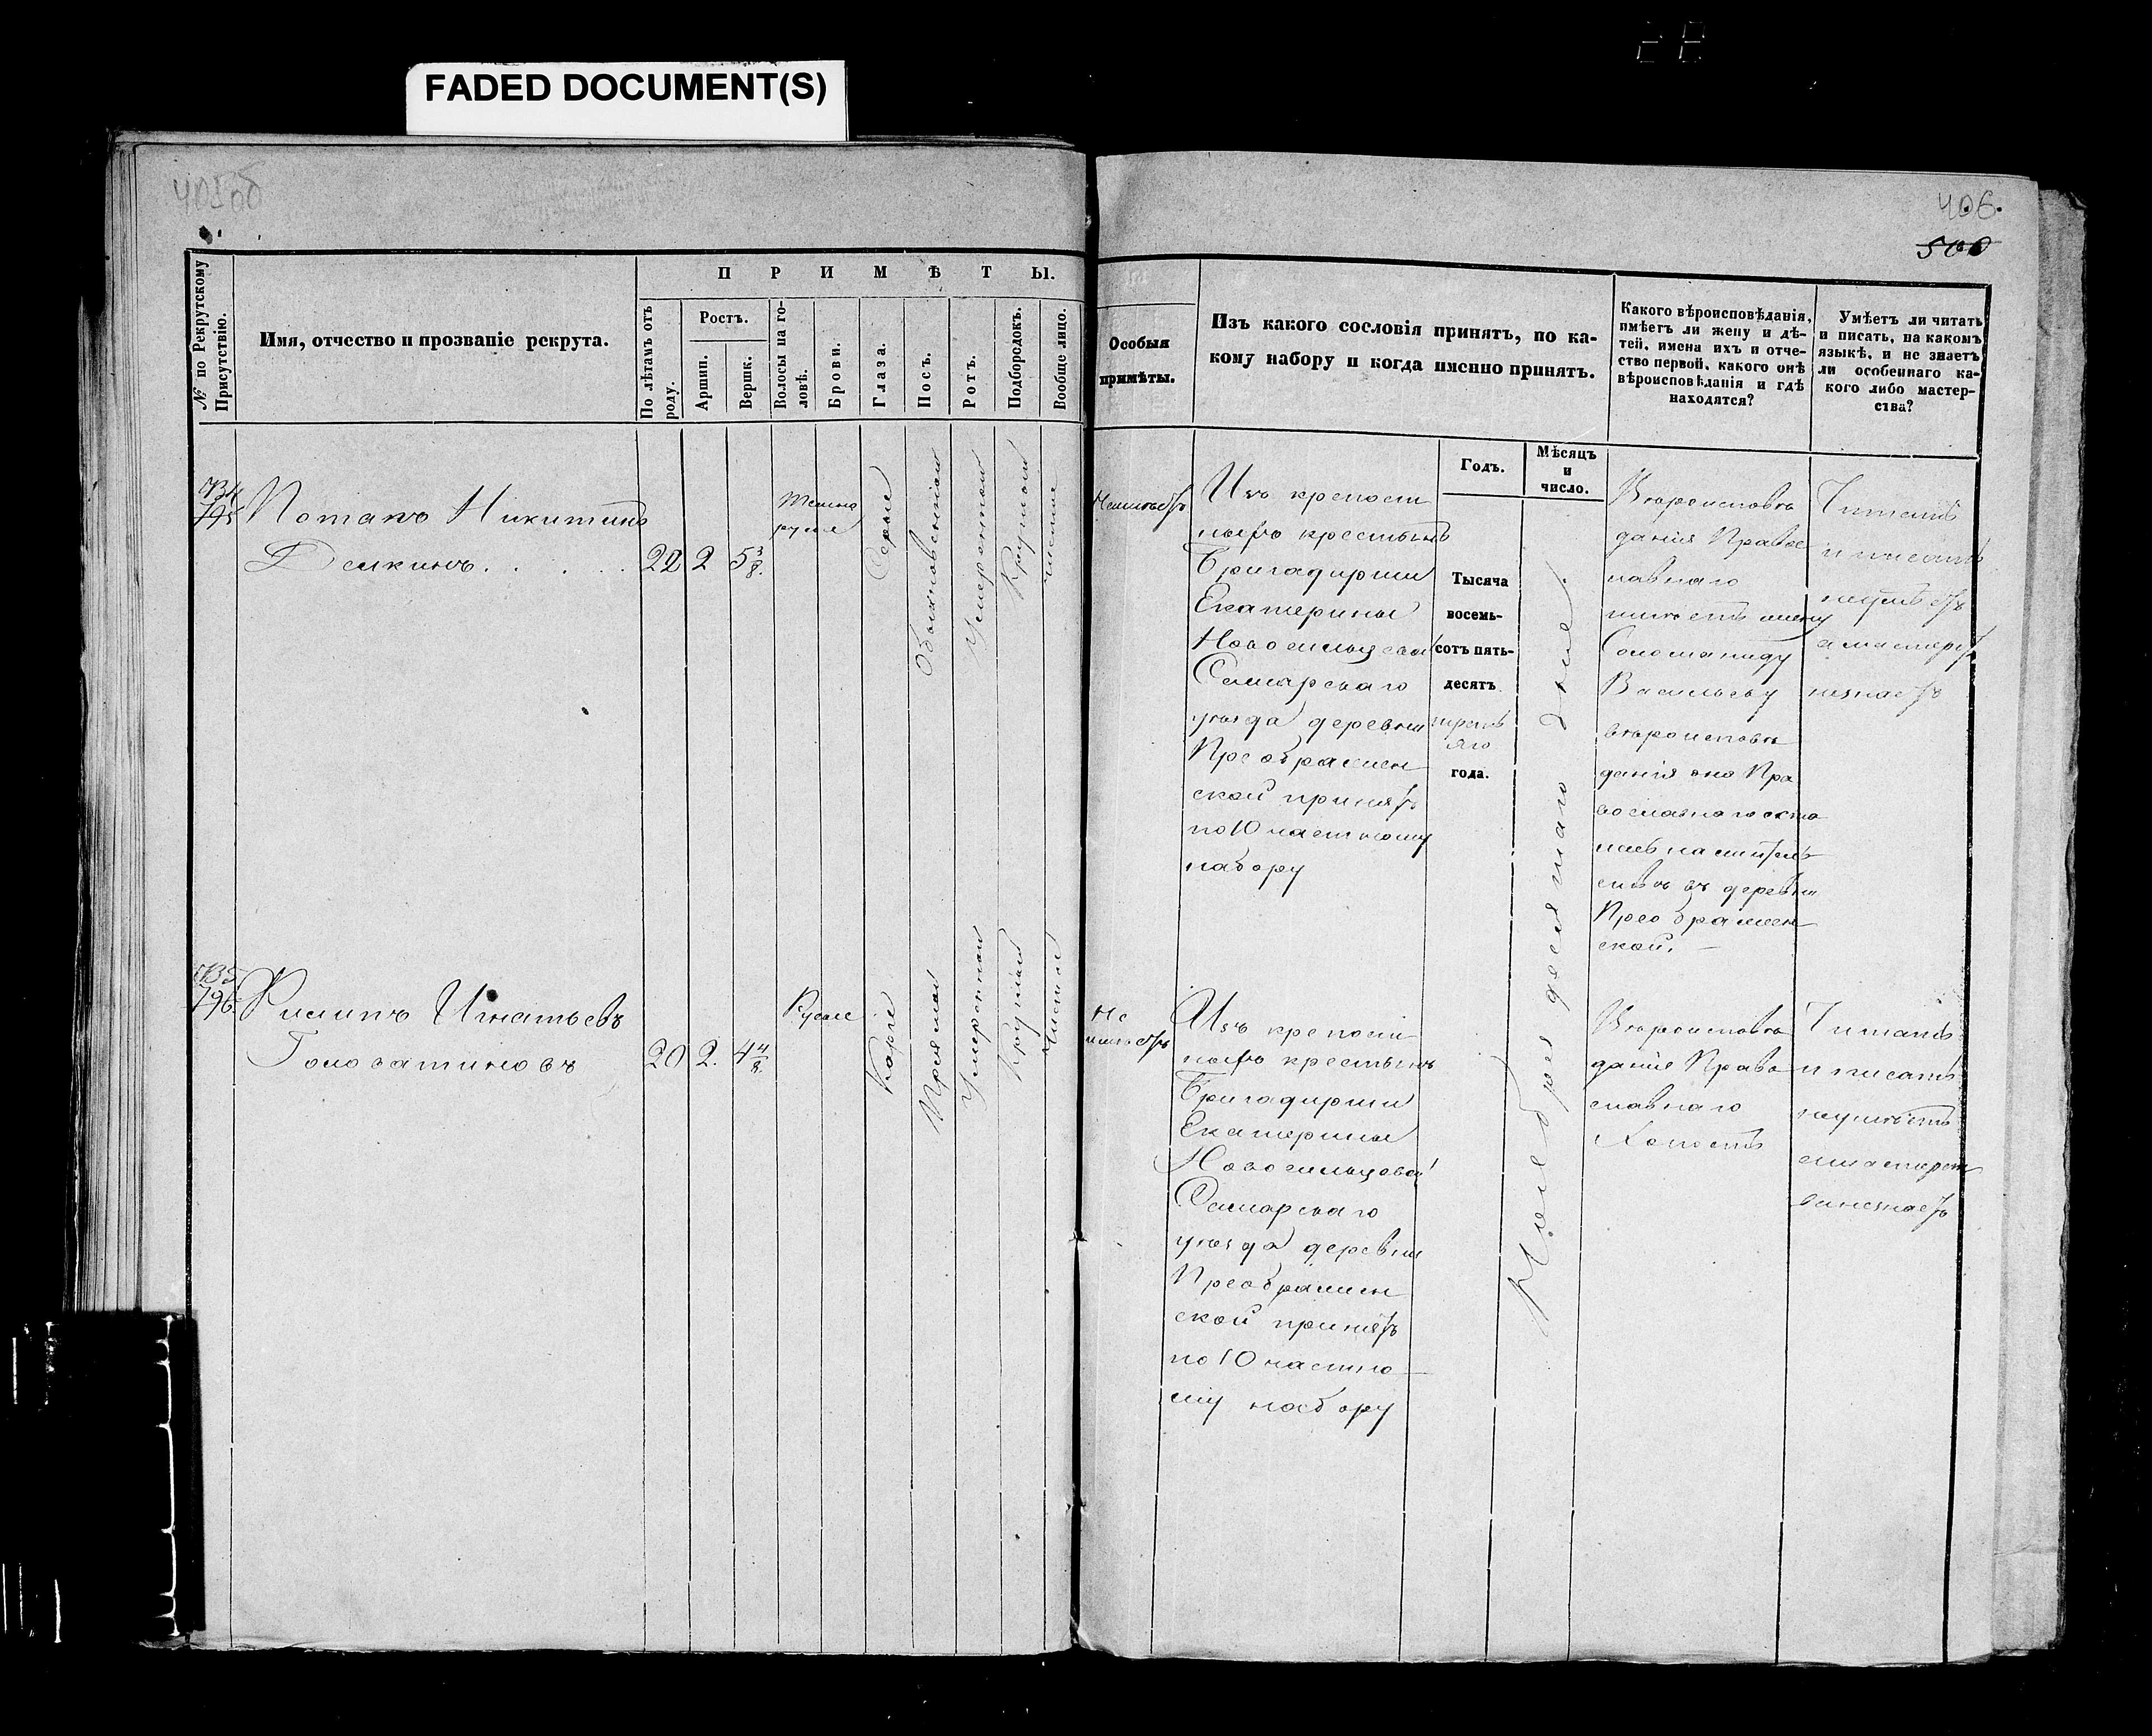 FADED DOCUMENT(S)
405об
406.
500
№ по Рекрутскому Присутствію.
Имя, отчество и прозваніе рекрута.
ПРИМѢТЫ.
По лѣтамъ отъ роду.
Ростъ.
Аршин.
Вершк.
Волосы на головѣ.
Брови.
Глаза.
Носъ.
Ротъ.
Подбородокъ.
Вообще лицо.
Особыя
примѣты.
Изъ какого сословія принятъ, по ка-
кому набору и когда именно принятъ.
Какого вѣроисповѣданія,
имѣетъ ли жену и дѣ-
тей, имена ихъ и отче-
ство первой, какого онѣ
вѣроисповѣданія и гдѣ
находятся?
Умѣетъ ли читать
и писать, на какомъ
языкѣ, и не знаетъ
ли особеннаго ка-
кого либо мастер-
ства?
Годъ.
Мѣсяцъ
и
число.
795
Потапъ Никитинъ
Демкинъ. . . . .
22 2 5 3/8.
Темно
русые
Серые
Обыкновенной
Умеренной
Круглой
Чистое
Неимеетъ
Изъ крепост
ныхъ крестьянъ
Бригадирши
Екатерины
Новосильцевой
Самарскаго
уѣзда деревни
Преображен
ской принятъ
по 10 частному
набору
Тысяча
восемь-
сотъ пять-
десятъ
третьяго
года.
Ноября десятаго дня.
Вѣроисповѣ
данія Правос
лавнаго
имѣетъ жену
Соломаниду
Васильеву
вѣроисповѣ
данія она Пра
вославнаго оста
лась на житель
ствѣ въ деревни
Преображен
ской.
Читать
и писать
неумѣетъ
а мастерст
незнаетъ
735
796.
Филипъ Игнатьевъ
Головатиновъ
20 2. 4 4/8.
Русые
Карие
Прямой
Умеренной
Круглой
Чистое
Не
имѣетъ
Изъ крепост
ныхъ крестьянъ
Бригадирши
Екатерины
Новосильцовой
Самарскаго
уѣзда деревни
Преображен
ской принятъ
по 10 частно
му набору
Вѣроисповѣ
данія Право
славнаго
Холостъ
Читать
и писать
неумѣетъ
и мастерст
ва незнаетъ